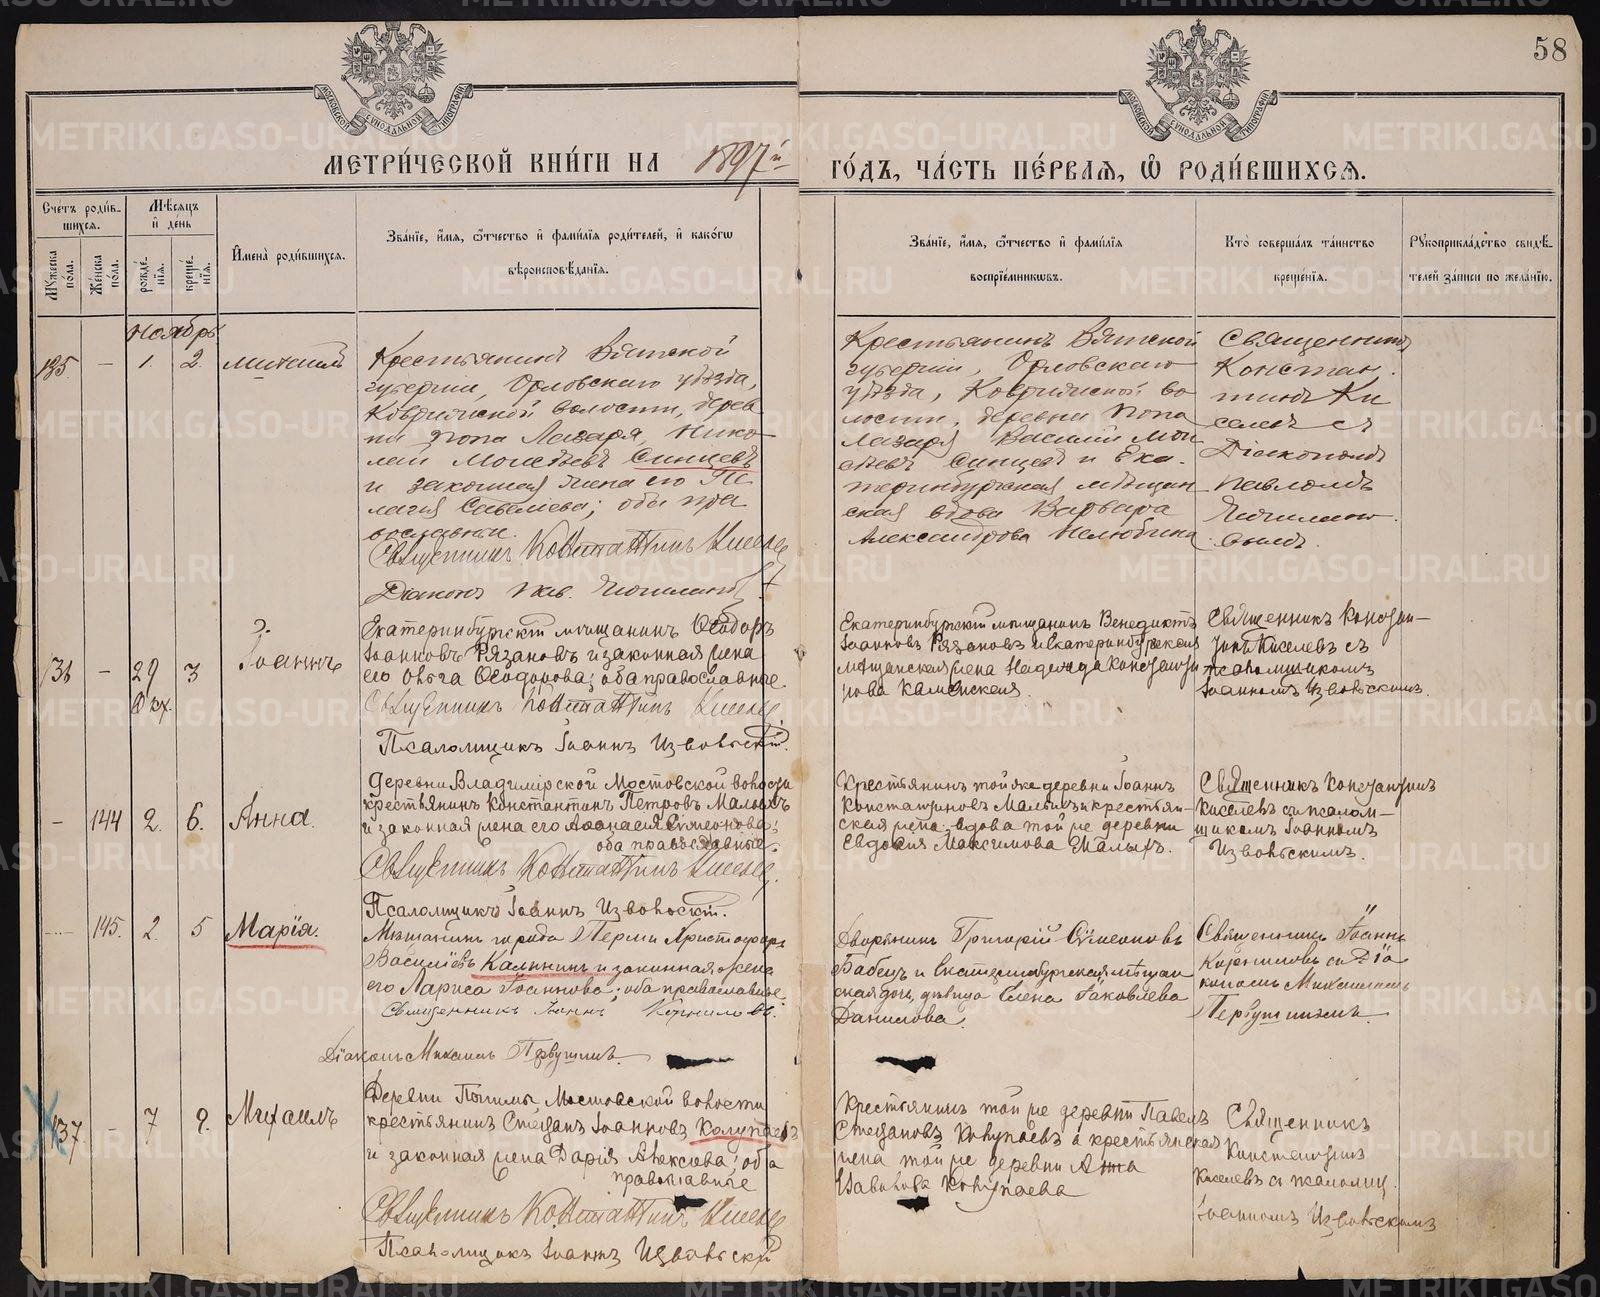 58
МОСКОВСКОЙ СУНОДАЛЬНОЙ ТИПОГРАФІИ
МОСКОВСКОЙ СУНОДАЛЬНОЙ ТИПОГРАФІИ
МЕТРИ́ЧЕСКОЙ КНИ́ГИ НА 1897й ГО́ДЪ, ЧА́СТЬ ПЕ́РВАѦ, Ѽ РОДИ́ВШИХСѦ.
Сче́тъ роди́в-
шихсѧ.
Мѣ́сѧцъ
и҆ де́нь
И҆мена̀ роди́вшихсѧ.
Зва́нїе, и҆́мѧ, ѻ҆́тчество и҆ фами́лїѧ роди́телей, и҆ како́гѡ
вѣроисповѣ́данїѧ.
Мꙋ́жеска
по́ла.
Же́нска
по́ла.
рожде́-
нїѧ.
креще́-
нїѧ.
Зва́нїе, и҆́мѧ, ѻ҆́тчество и҆ фами́лїѧ
воспрїе́мникѡвъ.
Кто̀ соверша́лъ та́инство
креще́нїѧ.
Рꙋкоприкла́дство свидѣ́-
телей за́писи по жела́нїю.
Ноябрь
135 — 1. 2.
Крестьянинъ Вятской
губерніи, Орловскаго уѣзда,
волости, дерев
ни Попа Лазаря, Нико
лай Моисѣевъ Синцевъ
и законная жена его Пе
лагія Савеліева; оба пра
вославные.
Священникъ Константинъ
Діаконъ Пав.
Крестьянинъ Вятской
губерніи, Орловскаго
уѣзда, во
лости, деревни Попа
Лазаря Василій Мои
сѣевъ Синцевъ и Ека-
теринбургская мѣщан
ская вдова Варвара
Александрова Нелюбина
Священникъ
Констан
тинъ Ки
селевъ съ
Діакономъ
Павломъ
136 — 29 3 Іоаннъ
Окт.
Екатеринбургскій мѣщанинъ Ѳеодоръ
Іоанновъ Рязановъ и законная жена
его Ольга Ѳеодорова; оба православные
Священникъ Константинъ
Псаломщикъ Іоаннъ
Екатеринбургскій мѣщанинъ Венедиктъ
Іоанновъ Рязановъ и Екатеринбургская
мѣщанская жена Надежда Константи
нова Каменская.
Священникъ Констан-
тинъ Киселевъ съ
псаломщикомъ
Іоанномъ
— 144 2. 6. Анна.
Деревни Владимірской Мостовской волости
крестьянинъ Константинъ Петровъ Малыхъ
и законная жена его Аѳанасія Симеонова;
оба православные.
Священникъ Константинъ
Псаломщикъ Іоаннъ
Крестьянинъ той же деревни Іоаннъ
Константиновъ Малыхъ и крестьян-
ская жена вдова той же деревни
Евдокія Максимова Малыхъ.
Священникъ Константинъ
Киселевъ съ псалом-
щикомъ Іоанномъ
145. 2. 5 Марія.
Мѣщанинъ города Перми Христофоръ
Василіевъ Калининъ и законная жена
его Лариса Іоаннова; оба православные.
Священникъ Іоаннъ Корниловъ.
Діаконъ Михаилъ Первушинъ
Дворянинъ Григорій Симеоновъ
Бабецъ и Екатеринбургская мѣщан
ская дочь, дѣвица Елена Іаковлева
Данилова.
Священникъ Іоаннъ
Корниловъ съ Діа
кономъ Михаиломъ
Первушинымъ.
137. — 7 9. Михаилъ
Деревни Мостовской волости
крестьянинъ Стефанъ Іоанновъ Колупаевъ
и законная жена Дарія Алексіева; оба
православные
Священникъ Константинъ
Псаломщикъ Іоаннъ
Крестьянинъ той же деревни Павелъ
Стефановъ Колупаевъ и крестьянская
жена той же деревни Анна
Колупаева
Священникъ
Константинъ
Киселевъ съ псаломщ.
Іоанномъ
METRIKI.GASO-URAL.RU